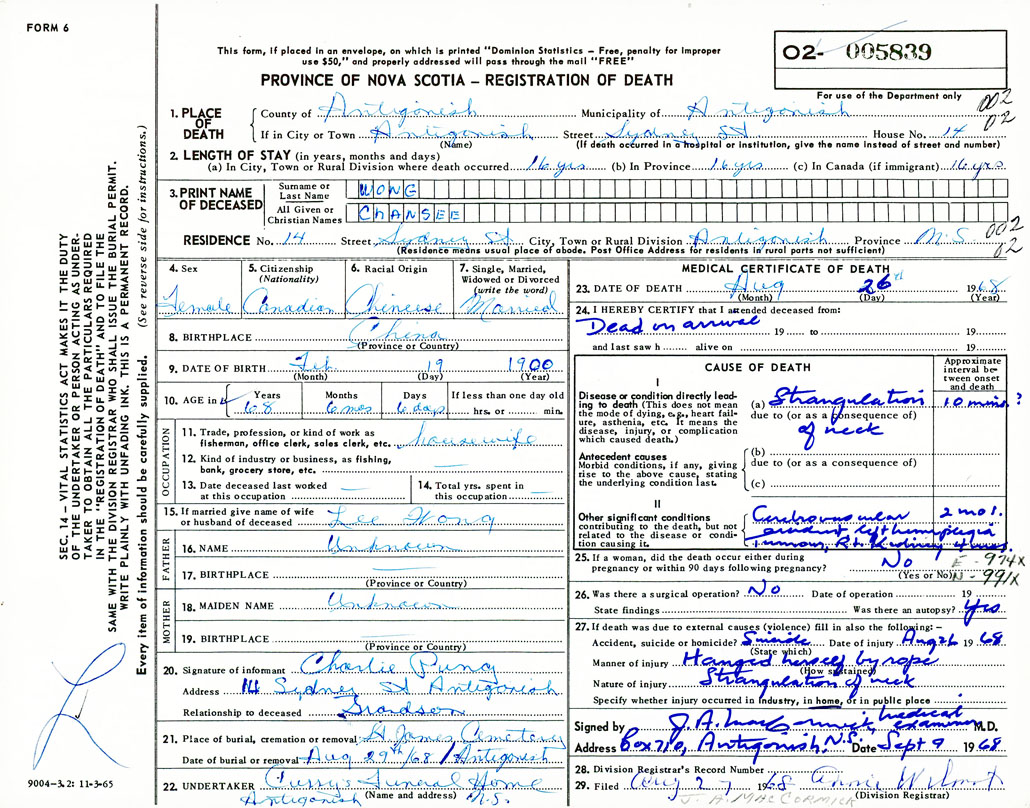 FORM 6
This form, if placed in an envelope, on which is printed "Dominion Statistics – Free, penalty for improper
use $50," and properly addressed will pass through the mail "FREE"
PROVINCE OF NOVA SCOTIA – REGISTRATION OF DEATH
02- 005839
For use of the Department only
002
02
1. PLACE OF DEATH County of Antigonish Municipality of Antigonish
If in City or Town Antigonish Street Sydney St. House No. 14
(Name) (If death occurred in a hospital or institution, give the name instead of street and number)
2. LENGTH OF STAY (in years, months and days)
(a) In City, Town or Rural Division where death occurred 16 yrs (b) In Province 16 yrs (c) In Canada (if immigrant) 16 yrs
3. PRINT NAME OF DECEASED Surname or Last Name WONG
All Given or Christian Names CHANSEE
002
02
RESIDENCE No. 14 Street Sydney St City, Town or Rural Division Antigonish Province N.S.
(Residence means usual place of abode. Post Office Address for residents in rural parts not sufficient)
4. Sex 5. Citizenship (Nationality) 6. Racial Origin 7. Single, Married, Widowed or Divorced (write the word)
Female Canadian Chineese Married
8. BIRTHPLACE China
(Province or Country)
9. DATE OF BIRTH Feb. 19 1900
(Month) (Day) (Year)
10. AGE in Years Months Days If less than one day old
68 6 mos 6 days hrs. or min.
OCCUPATION
11. Trade, profession, or kind of work as
fisherman, office clerk, sales clerk, etc. housewife
12. Kind of industry or business, as fishing,
bank, grocery store, etc.
13. Date deceased last worked
at this occupation
14. Total yrs. spent in
this occupation
15. If married give name of wife
or husband of deceased Lee Wong
FATHER
16. NAME Unknown
17. BIRTHPLACE
(Province or Country)
MOTHER
18. MAIDEN NAME Unknown
19. BIRTHPLACE
(Province or Country)
20. Signature of informant Charlie Pung
Address 14 Sydney St Antigonish
Relationship to deceased Grandson
21. Place of burial, cremation or removal St James Cemetery
Date of burial or removal Aug 29th/68 / Antigonish
22. UNDERTAKER Curry's Funeral Home
(Name and address)
Antigonish N.S.
MEDICAL CERTIFICATE OF DEATH
23. DATE OF DEATH Aug 26th 1968
(Month) (Day) (Year)
24. I HEREBY CERTIFY that I attended deceased from:
Dead on arrival 19 to 19
and last saw h alive on 19
CAUSE OF DEATH
Approximate interval between onset and death
I
Disease or condition directly leading to death (This does not mean the mode of dying, e.g., heart failure, asthenia, etc. It means the disease, injury, or complication which caused death.)
(a) Strangulation 10 mins. ?
due to (or as a consequence of)
of neck
Antecedent causes
Morbid conditions, if any, giving rise to the above cause, stating the underlying condition last.
(b)
due to (or as a consequence of)
(c)
II
Other significant conditions contributing to the death, but not related to the disease or condition causing it.
Cerebrovascular 2 mos.
accident left hemiplegia
tumour, Rt. Kidney
25. If a woman, did the death occur either during
pregnancy or within 90 days following pregnancy? No
(Yes or No)
E - 974X
N - 991X
26. Was there a surgical operation? No Date of operation 19
State findings Was there an autopsy? Yes
27. If death was due to external causes (violence) fill in also the following:–
Accident, suicide or homicide? Suicide Date of injury Aug 26 1968
(State which)
Manner of injury Hanged herself by rope
(How sustained)
Nature of injury Strangulation of neck
Specify whether injury occurred in industry, in home, or in public place
Signed by J. A. MacCormick medical examiner M.D.
Address Box 710, Antigonish, N.S. Date Sept 9 1968
28. Division Registrar's Record Number
29. Filed Aug 1968
(Division Registrar)
J. A. MACCORMICK
SEC. 14 – VITAL STATISTICS ACT MAKES IT THE DUTY
OF THE UNDERTAKER OR PERSON ACTING AS UNDER-
TAKER TO OBTAIN ALL THE PARTICULARS REQUIRED
IN THE "REGISTRATION OF DEATH" AND TO FILE THE
SAME WITH THE DIVISION REGISTRAR WHO SHALL ISSUE THE BURIAL PERMIT.
WRITE PLAINLY WITH UNFADING INK. THIS IS A PERMANENT RECORD.
Every item of information should be carefully supplied. (See reverse side for instructions.)
9004-3.2: 11-3-65